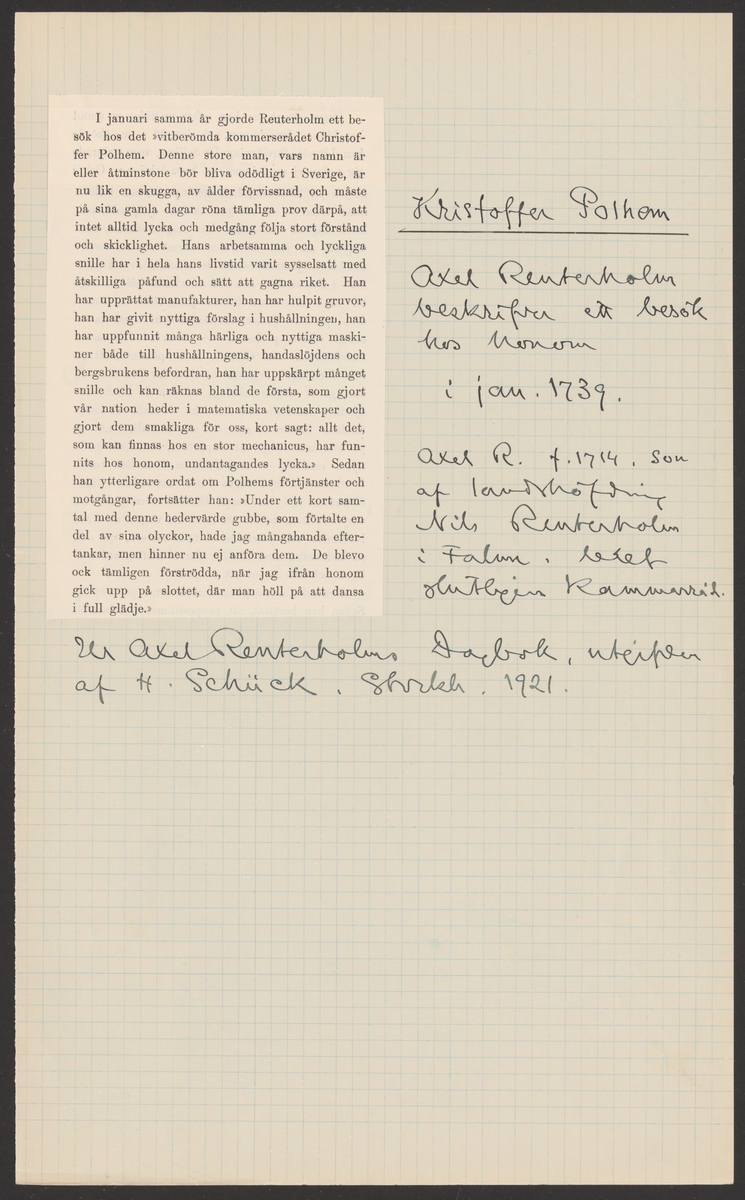 I januari samma år gjorde Reuterholm ett be-
sök hos det »vitberömda kommerserådet Christof-
fer Polhem. Denne store man, vars namn är
eller åtminstone bör bliva odödligt i Sverige, är
nu lik en skugga, av ålder förvissnad, och måste
på sina gamla dagar röna tämliga prov därpå, att
intet alltid lycka och medgång följa stort förstånd
och skicklighet. Hans arbetsamma och lyckliga
snille har i hela hans livstid varit sysselsatt med
åtskilliga påfund och sätt att gagna riket. Han
har upprättat manufakturer, han har hulpit gruvor,
han har givit nyttiga förslag i hushållningen, han
har uppfunnit många härliga och nyttiga maski-
ner både till hushållningens, handaslöjdens och
bergsbrukens befordran, han har uppskärpt månget
snille och kan räknas bland de första, som gjort
vår nation heder i matematiska vetenskaper och
gjort dem smakliga för oss, kort sagt: allt det,
som kan finnas hos en stor mechanicus, har fun-
nits hos honom, undantagandes lycka.» Sedan
han ytterligare ordat om Polhems förtjänster och
motgångar, fortsätter han: »Under ett kort sam-
tal med denne hedervärde gubbe, som förtalte en
del av sina olyckor, hade jag mångahanda efter-
tankar, men hinner nu ej anföra dem. De blevo
ock tämligen förströdda, när jag ifrån honom
gick upp på slottet, där man höll på att dansa
i full glädje.»
Kristoffer Polhem
Axel Reuterholm
beskrifver ett besök
hos honom
i jan. 1739.
Axel R. f. 1714. Son
af landshöfding
Nils Reuterholm
i Falun.
slutligen Kammarråd.
Ur Axel Reuterholms Dagbok, utgifven
af H. Schück. Stockh. 1921.